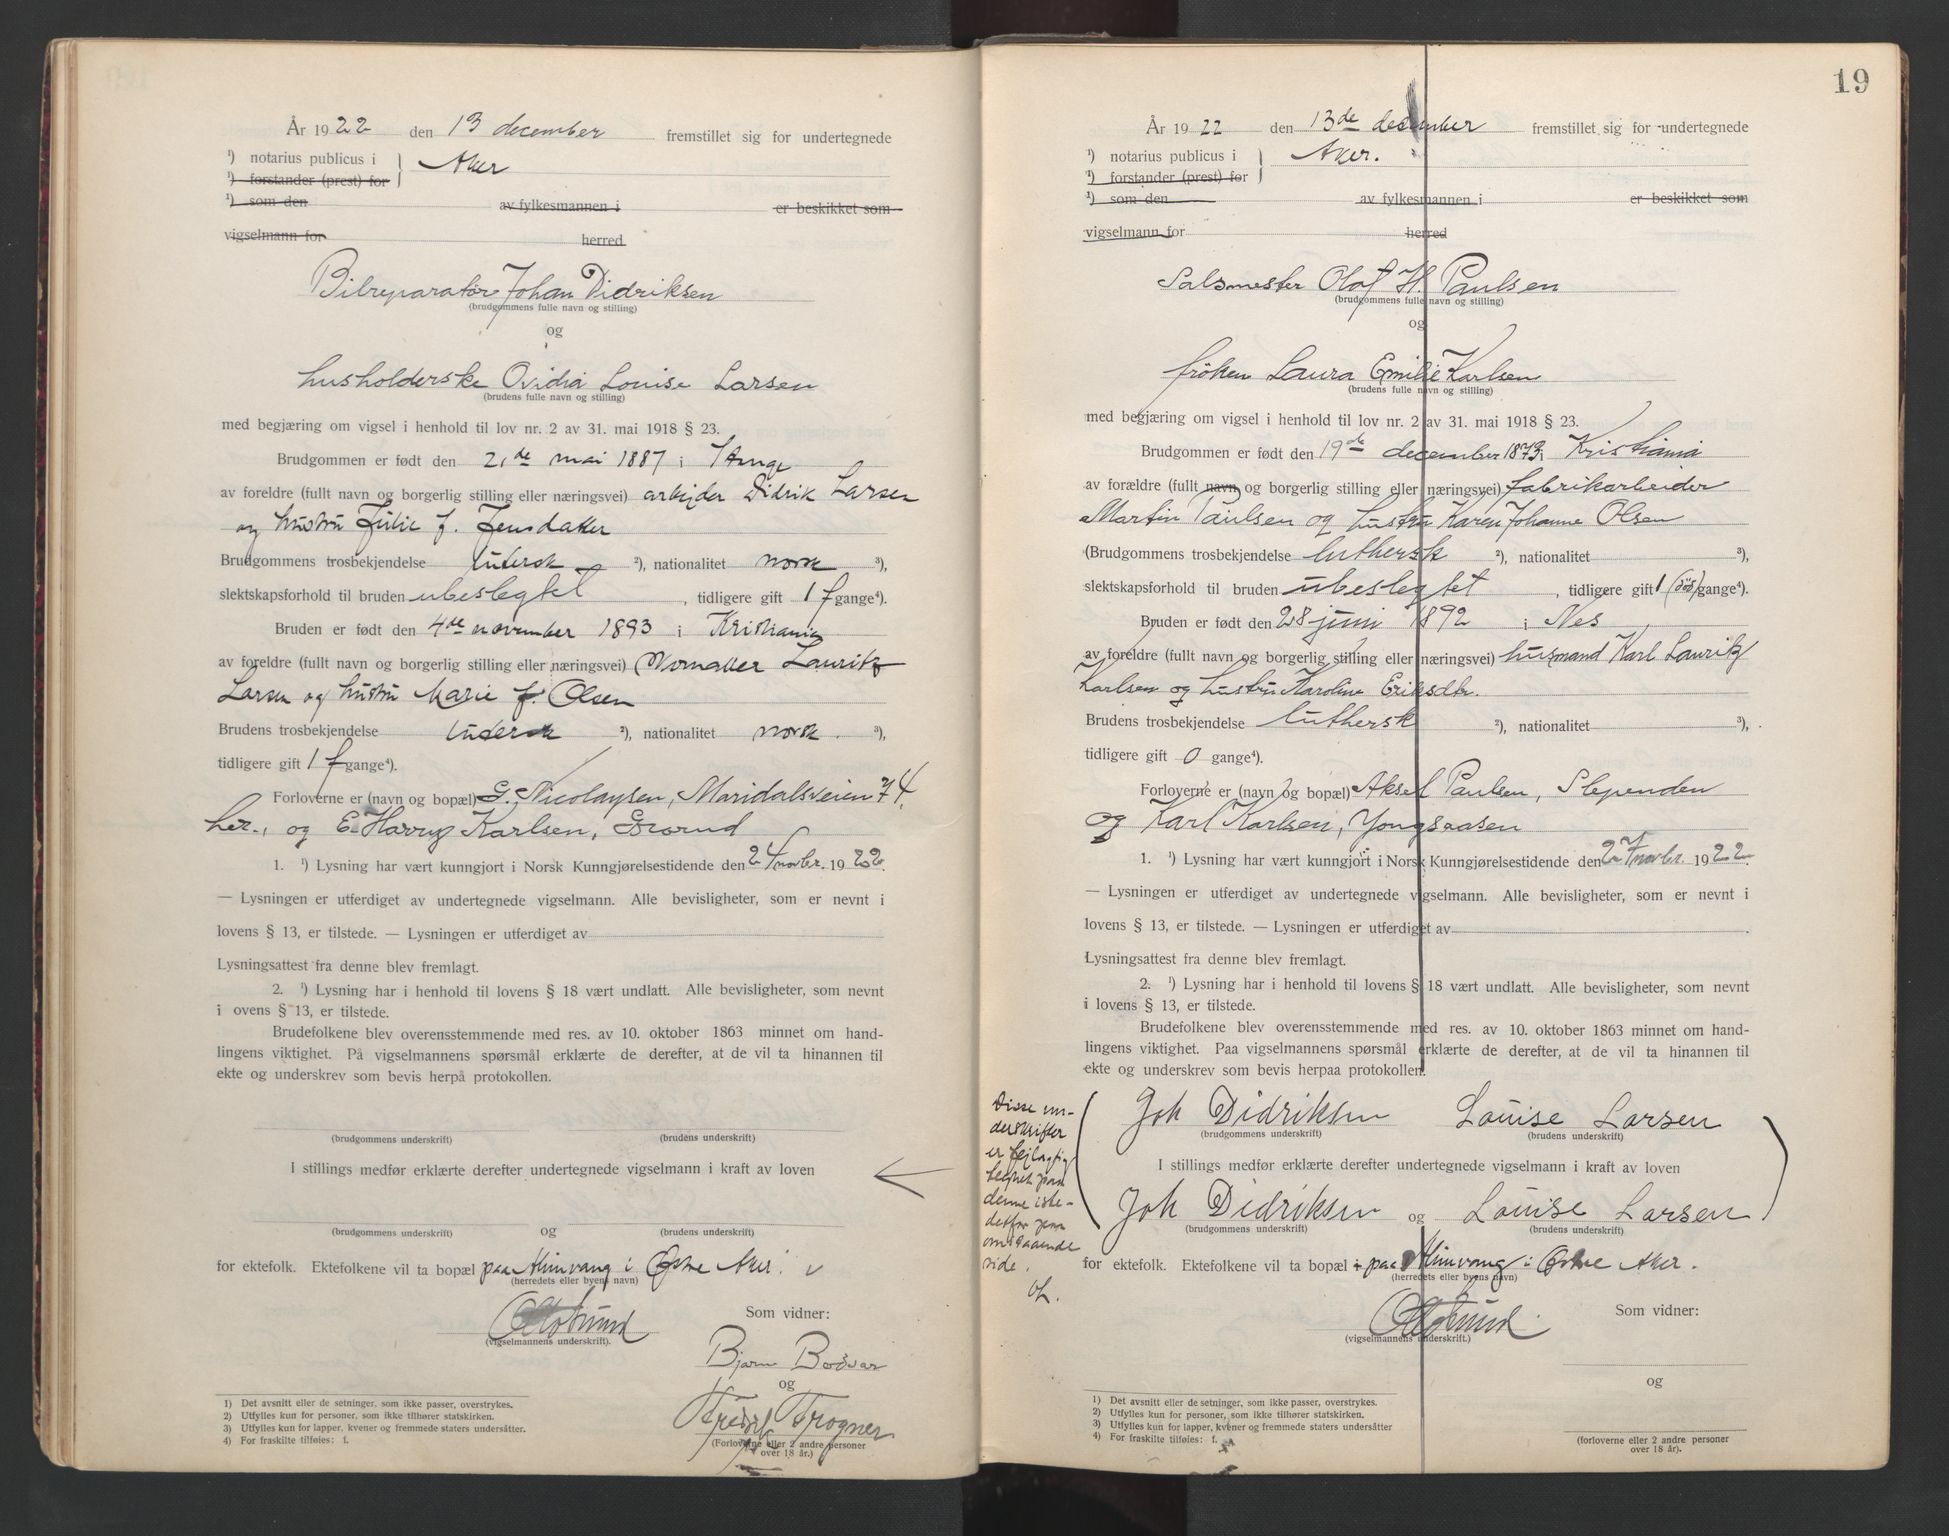 År 1922 den 13 december fremstillet sig for undertegnede
¹) notarius publicus i } Aker
¹) forstander (prest) for
¹) som den av fylkesmannen i er beskikket som
vigselmann for herred
Bilreparatør Johan Didriksen
(brudgommens fulle navn og stilling)
og
husholderske Ovidia Louise Larsen
(brudens fulle navn og stilling)
med begjæring om vigsel i henhold til lov nr. 2 av 31. mai 1918 § 23.
Brudgommen er født den 21de mai 1887 i Stange
av foreldre (fullt navn og borgerlig stilling eller næringsvei) arbeijder Didrik Larsen
og hustru Julie f. Jensdatter
Brudgommens trosbekjendelse lutersk ²), nationalitet norsk ³),
slektskapsforhold til bruden ubeslegtet, tidligere gift 1 f gange⁴).
Bruden er født den 4de november 1893 i Kristiania
av foreldre (fullt navn og borgerlig stilling eller næringsvei) Lauritz
Larsen og hustru Marie f. Olsen
Brudens trosbekjendelse lutersk ²), nationalitet norsk. ³),
tidligere gift 1 f gange⁴).
Forloverne er (navn og bopæl) G. Nicolaysen, Maridalsveien 74,
her., og E. Harry Karlsen, Grorud
1. ¹) Lysning har vært kunngjort i Norsk Kunngjørelsestidende den 24 novbr. 1922.
— Lysningen er utferdiget av undertegnede vigselmann. Alle bevisligheter, som er nevnt i
lovens § 13, er tilstede. — Lysningen er utferdiget av
Lysningsattest fra denne blev fremlagt.
2. ¹) Lysning har i henhold til lovens § 18 vært undlatt. Alle bevisligheter, som nevnt
i ovens § 13, er tilstede.
Brudefolkene blev overensstemmende med res. av 10. oktober 1863 minnet om hand-
lingens viktighet. På vigselmannens spørsmål erklærte de derefter, at de vil ta hinannen til
ekte og underskrev som bevis herpå protokollen.
(brudgommens underskrift) (brudens underskrift)
I stillings medfør erklærte derefter undertegnede vigselmann i kraft av loven
og
(brudgommens underskrift) (brudens underskrift)
for ektefolk. Ektefolkene vil ta bopæl paa Almvang i Østre Aker.
(herredets eller byens navn)
Som vidner:
(vigselmannens underskrift).
Bjarne Bodvar
og
Fredrik Frogner
(Forloverne eller 2 andre personer
over 18 år.)
1) Det avsnitt eller de setninger, som ikke passer, overstrykes.
2) Utfylles kun for personer, som ikke tilhører statskirken.
3) Utfylles kun for lapper, kvener og fremmede staters undersåtter.
4) For fraskilte tilføies: f.
19
År 1922 den 13de december fremstillet sig for undertegnede
¹) notarius publicus i } Aker.
¹) forstander (prest) for
¹) som den av fylkesmannen i er beskikket som
vigselmann for herred
Salsmester Olaf H. Paulsen
(brudgommens fulle navn og stilling)
og
frøken Laura Emilie Karlsen
(brudens fulle navn og stilling)
med begjæring om vigsel i henhold til lov nr. 2 av 31. mai 1918 § 23.
Brudgommen er født den 19de december 1873 i Kristiania
av forældre (fullt navn og borgerlig stilling eller næringsvei) fabrikarbeider
Martin Paulsen og hustru Karen Johanne Olsen
(Brudgommens trosbekjendelse luthersk ²), nationalitet ³),
slektskapsforhold til bruden ubeslegtet, tidligere gift 1 (død) gange⁴).
Bruden er født den 28 juni 1892 i Nes
av foreldre (fullt navn og borgerlig stilling eller næringsvei) husmand Karl Lauritz
Karlsen og hustru Karoline Eriksdtr.
Brudens trosbekjendelse luthersk ²), nationalitet ³),
tidligere gift 0 gange⁴).
Forloverne er (navn og bopæl) Aksel Paulsen, Slependen
og Karl Karlsen, Jongsaasen
1. ¹) Lysning har vært kunngjort i Norsk Kunngjørelsestidende den 27 novbr. 1922.
— Lysningen er utferdiget av undertegnede vigselmann. Alle bevisligheter, som er nevnt i
lovens § 13, er tilstede. — Lysningen er utferdiget av
Lysningsattest fra denne blev fremlagt.
2. ¹) Lysning har i henhold til lovens § 18 vært undlatt. Alle bevisligheter, som nevnt
i lovens § 13, er tilstede.
Brudefolkene blev overensstemmende med res. av 10. oktober 1863 minnet om hand-
lingens viktighet. Paa vigselmannens spørsmål erklærte de derefter, at de vil ta hinannen til
ekte og underskrev som bevis herpaa protokollen.
Disse un-
derskrifter
er fejlagtig
tegnet paa
denne iste-
detfor paa
omstaaende
side.
Joh Didriksen Louise Larsen
(brudgommens underskrift) (brudens underskrift)
I stillings medfør erklærte derefter undertegnede vigselmann i kraft av loven
Joh Didriksen og Louise Larsen
(brudgommens underskrift) (brudens underskrift)
for ektefolk. Ektefolkene vil ta bopæl i paa Almvang i Østre Aker.
(herredets eller byens navn)
Som vidner:
(vigselmannens underskrift.)
og
(forloverne eller 2 andre personer
over 18 år).
1) Det avsnitt eller de setninger, som ikke passer, overstrykes.
2) Utfylles kun for personer, som ikke tilhører statskirken.
3) Utfylles kun for lapper, kvener og fremmede staters undersåtter
4) For fraskilte tilføies: f.